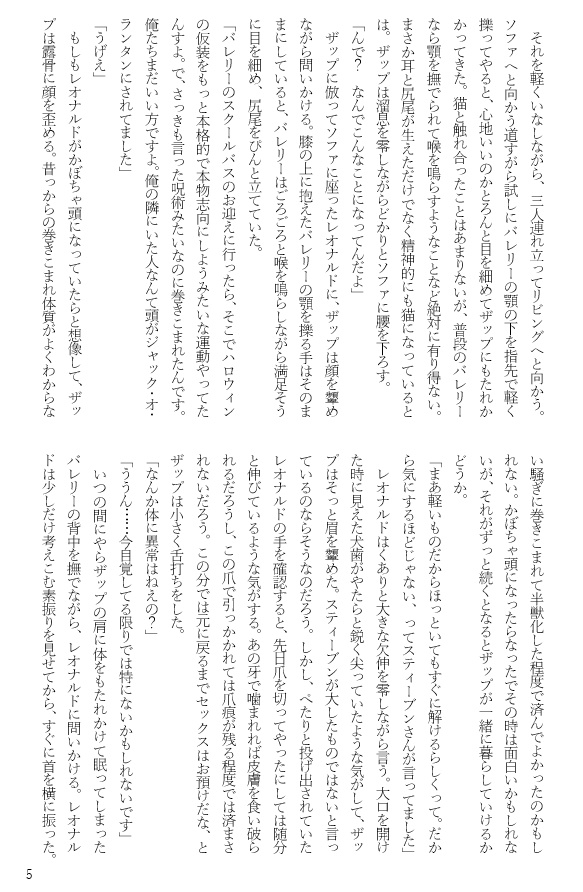 それを軽くいなしながら、三人連れ立ってリビングへと向かう。
ソファへと向かう道すがら試しにバレリーの顎の下を指先で軽く
擽ってやると、心地いいのかとろんと目を細めてザップにもたれか
かってきた。猫と触れ合ったことはあまりないが、普段のバレリー
なら顎を撫でられて喉を鳴らすようなことなど絶対に有り得ない。
まさか耳と尻尾が生えただけでなく精神的にも猫になっていると
は。ザップは溜息を零しながらどかりとソファに腰を下ろす。
「んで？　なんでこんなことになってんだよ」
ザップに倣ってソファに座ったレオナルドに、ザップは顔を顰め
ながら問いかける。膝の上に抱えたバレリーの顎を擽る手はそのま
まにしていると、バレリーはごろごろと喉を鳴らしながら満足そう
に目を細め、尻尾をぴんと立てていた。
「バレリーのスクールバスのお迎えに行ったら、そこでハロウィン
の仮装をもっと本格的で本物志向にしようみたいな運動やってた
んすよ。で、さっきも言った呪術みたいなのに巻きこまれたんです。
俺たちまだいい方ですよ。俺の隣にいた人なんて頭がジャック・オ・
ランタンにされてました」
「うげえ」
もしもレオナルドがかぼちゃ頭になっていたらと想像して、ザッ
プは露骨に顔を歪める。昔っからの巻きこまれ体質がよくわからな
い騒ぎに巻きこまれて半獣化した程度で済んでよかったのかもし
れない。かぼちゃ頭になったらなったでその時は面白いかもしれな
いが、それがずっと続くとなるとザップが一緒に暮らしていけるか
どうか。
「まあ軽いものだからほっといてもすぐに解けるらしくって。だか
ら気にするほどじゃない、ってスティーブンさんが言ってました」
レオナルドはくありと大きな欠伸を零しながら言う。大口を開け
た時に見えた犬歯がやたらと鋭く尖っていたような気がして、ザッ
プはそっと眉を顰めた。スティーブンが大したものではないと言っ
ているのならそうなのだろう。しかし、ぺたりと投げ出されていた
レオナルドの手を確認すると、先日爪を切ってやったにしては随分
と伸びているような気がする。あの牙で噛まれれば皮膚を食い破ら
れるだろうし、この爪で引っかかれては爪痕が残る程度では済まさ
れないだろう。この分では元に戻るまでセックスはお預けだな、と
ザップは小さく舌打ちをした。
「なんか体に異常はねえの？」
「ううん……今自覚してる限りでは特にないかもしれないです」
いつの間にやらザップの肩に体をもたれかけて眠ってしまった
バレリーの背中を撫でながら、レオナルドに問いかける。レオナル
ドは少しだけ考えこむ素振りを見せてから、すぐに首を横に振った。
5